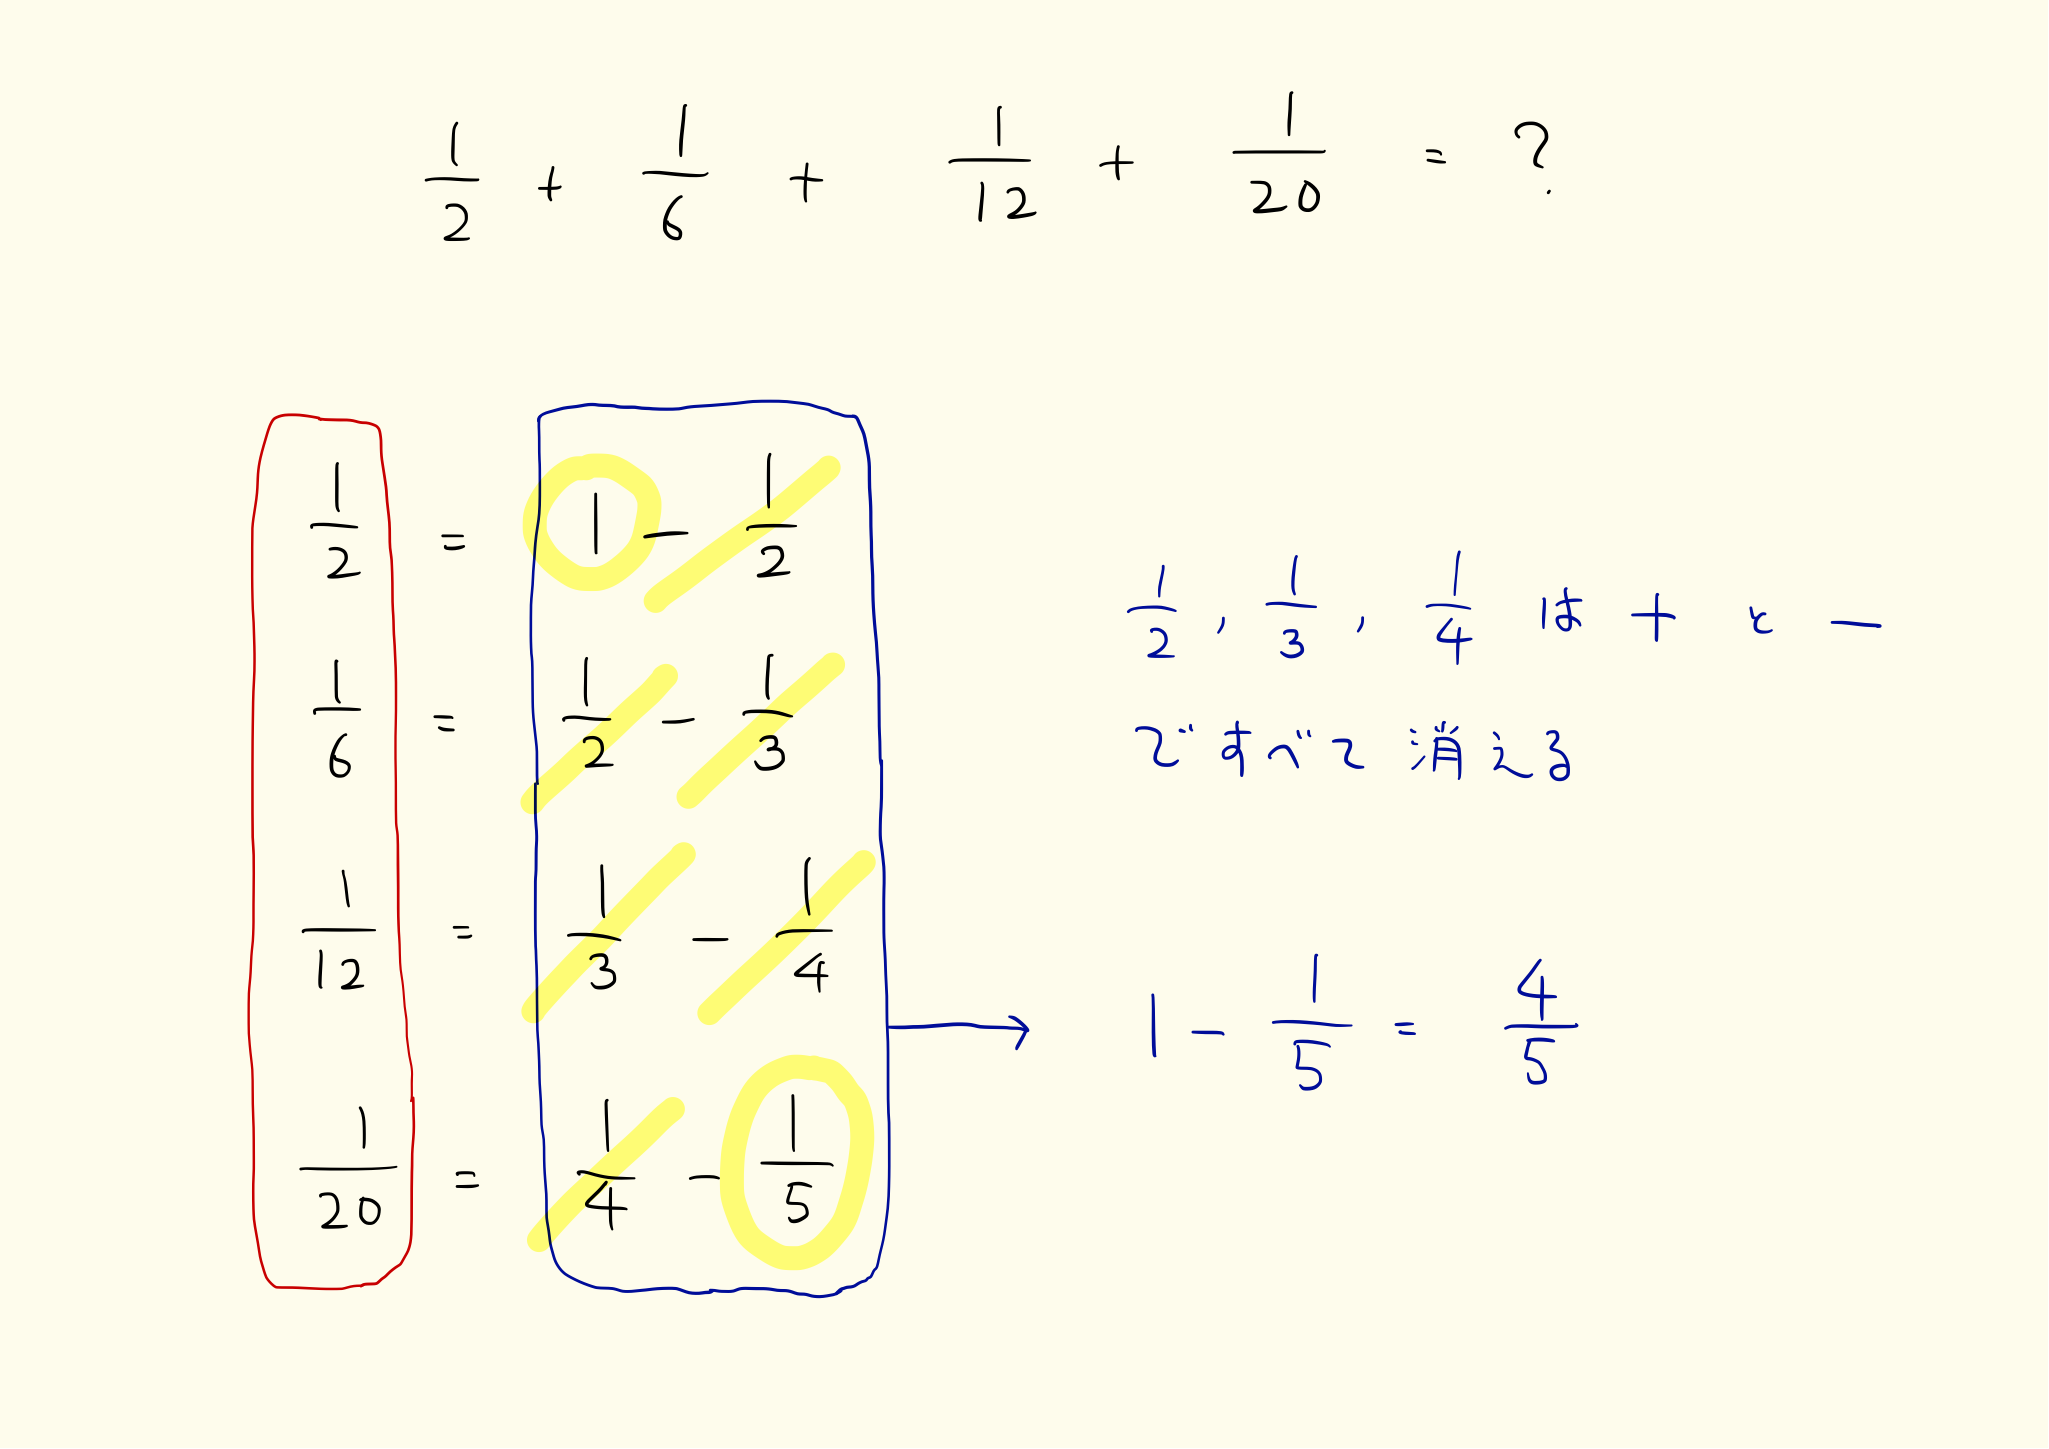 1/2 + 1/6 + 1/12 + 1/20 = ?
1/2 = 1 - 1/2
1/6 = 1/2 - 1/3
1/12 = 1/3 - 1/4
1/20 = 1/4 - 1/5
1/2, 1/3, 1/4 は + と -
ですべて消える
1 - 1/5 = 4/5